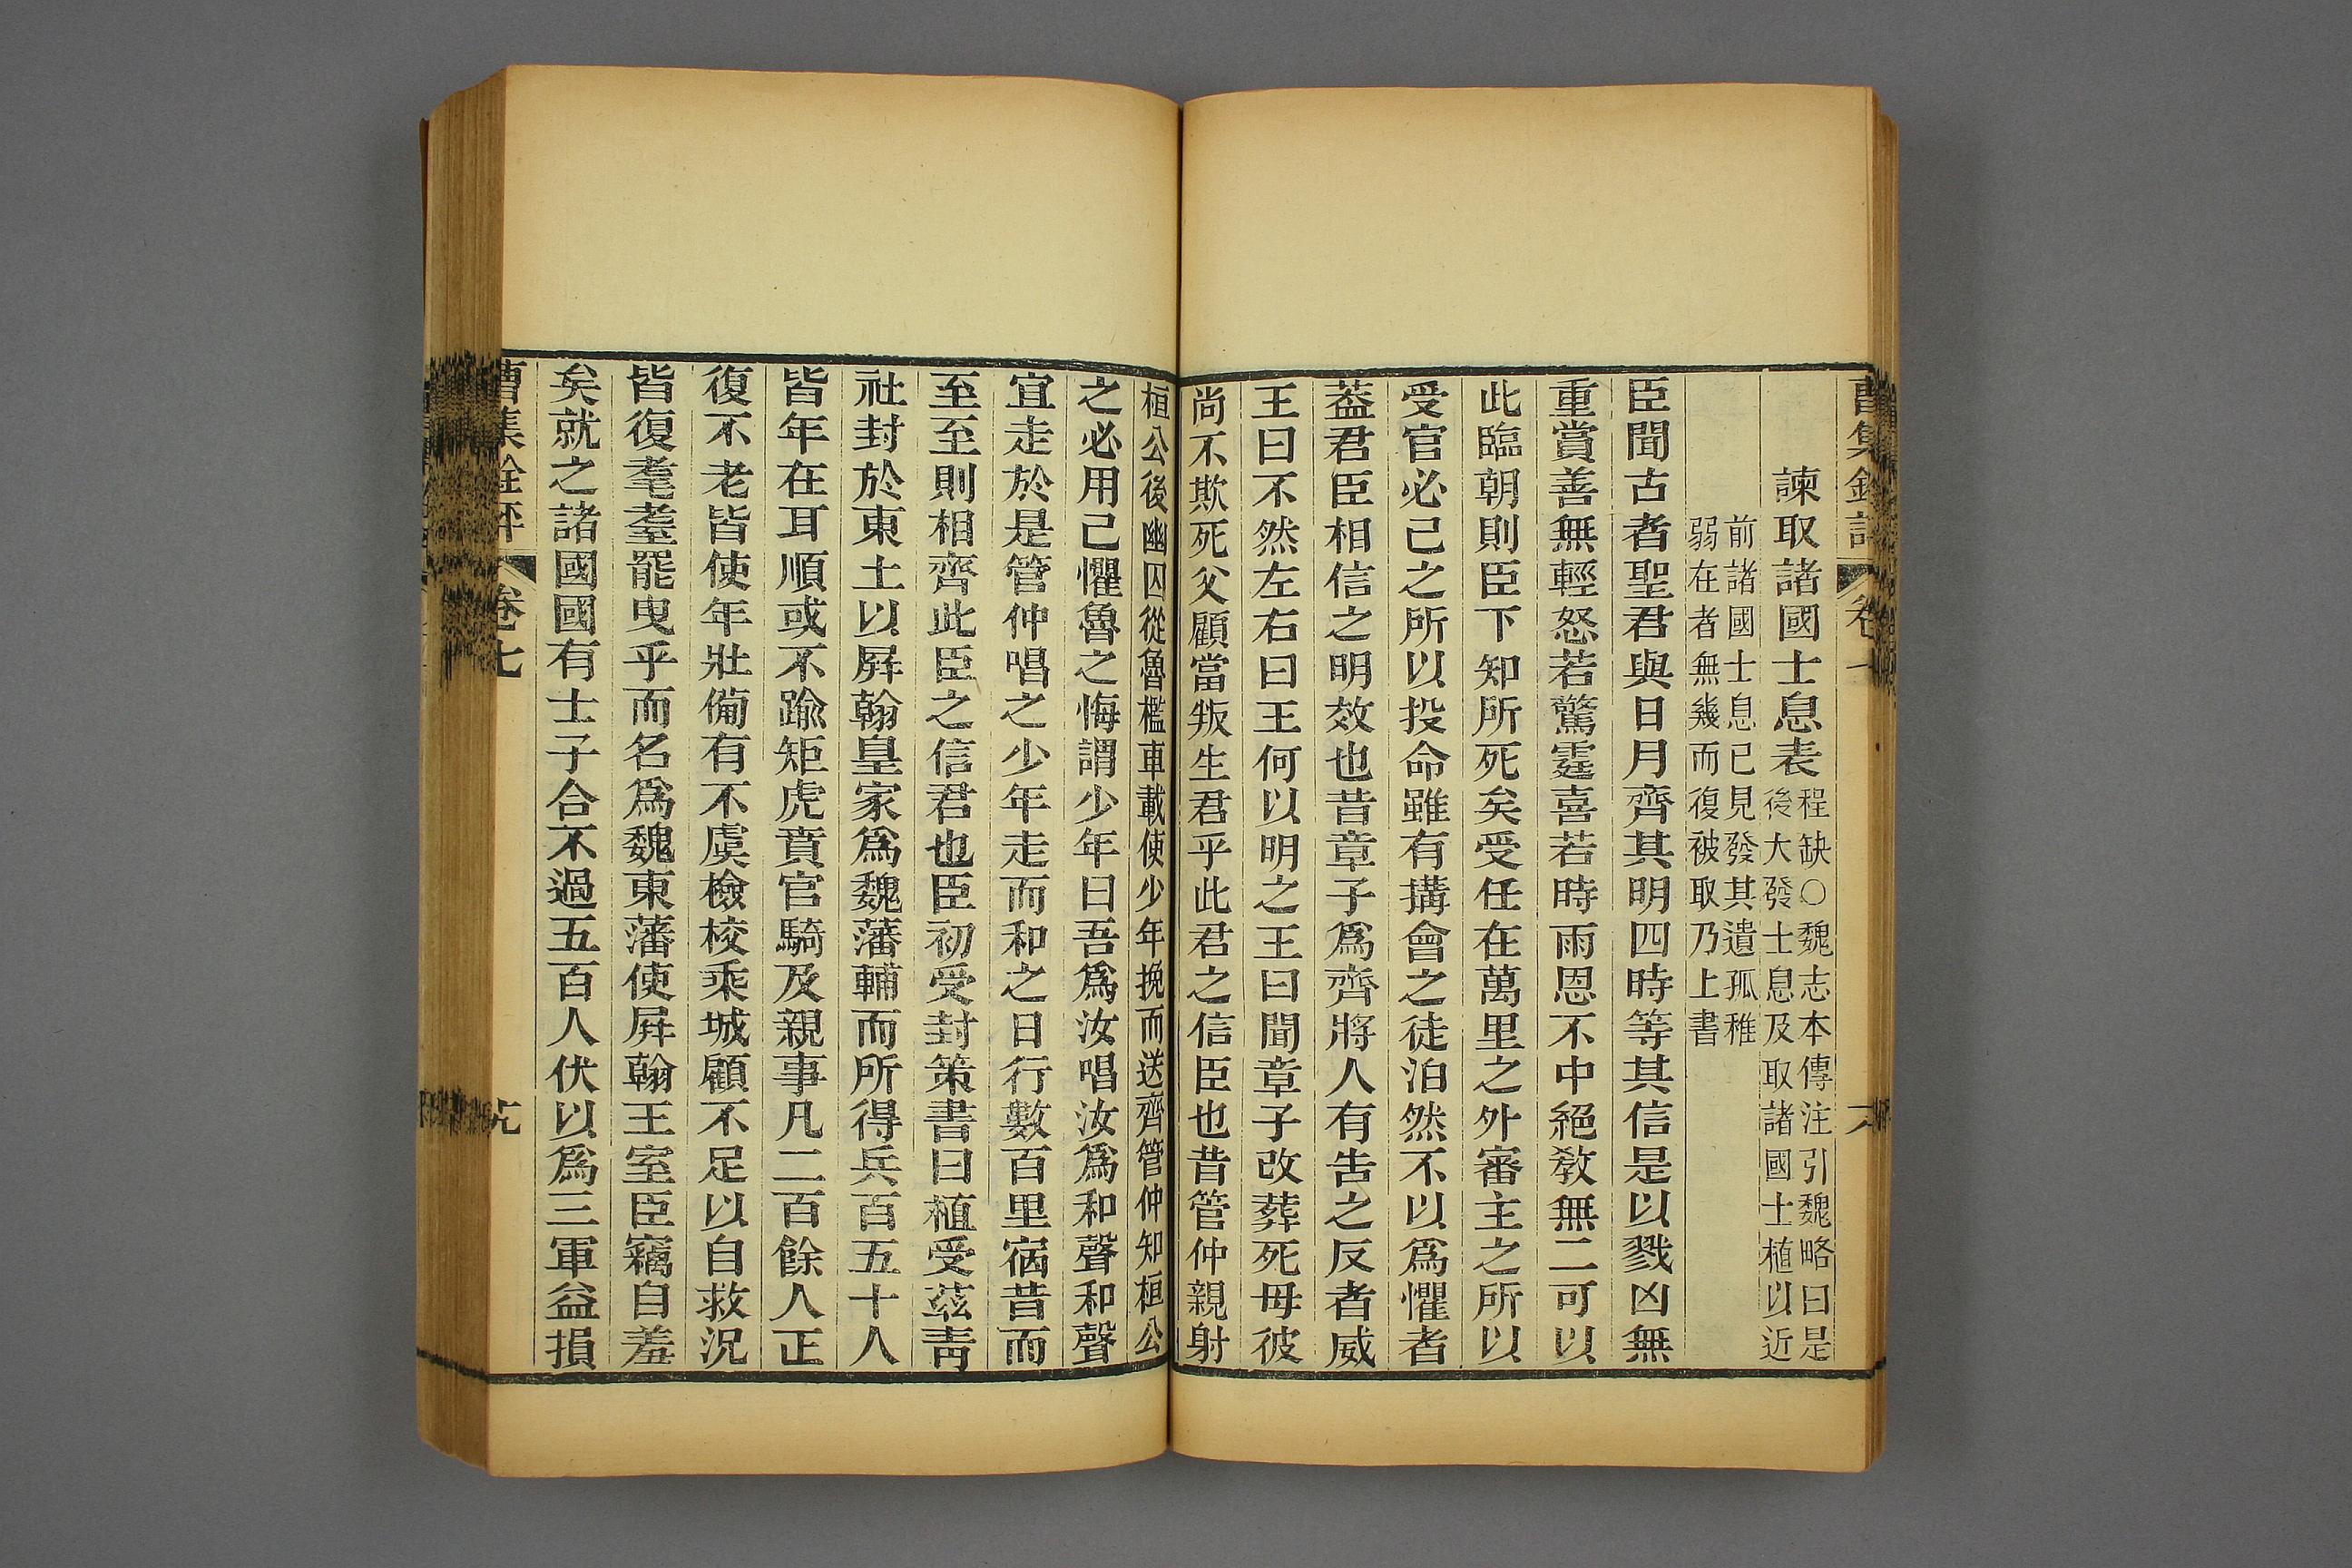 曹集銓評 卷七
諫取諸國士息表 程缺○魏志本傳注引魏略曰是
後大發士息及取諸國士植以近
前諸國士息已見發其遺孤稚
弱在者無幾而復被取乃上書
臣聞古者聖君與日月齊其明四時等其信是以戮凶無
重賞善無輕怒若驚霆喜若時雨恩不中絕教無二可以
此臨朝則臣下知所死矣受任在萬里之外審主之所以
受官必己之所以投命雖有搆會之徒泊然不以爲懼者
葢君臣相信之明效也昔章子爲齊將人有告之反者威
王曰不然左右曰王何以明之王曰聞章子改葬死母彼
尚不欺死父顧當叛生君乎此君之信臣也昔管仲親射
桓公後幽囚從魯檻車載使少年挽而送齊管仲知桓公
之必用己懼魯之悔謂少年曰吾爲汝唱汝爲和聲和聲
宜走於是管仲唱之少年走而和之日行數百里宿昔而
至至則相齊此臣之信君也臣初受封策書曰植受茲靑
社封於東土以屛翰皇家爲魏藩輔而所得兵百五十人
皆年在耳順或不踰矩虎賁官騎及親事凡二百餘人正
復不老皆使年壯備有不虞檢校乘城顧不足以自救況
皆復耄耋罷曳乎而名爲魏東藩使屛翰王室臣竊自羞
矣就之諸國國有士子合不過五百人伏以爲三軍益損
曹集銓評 卷七